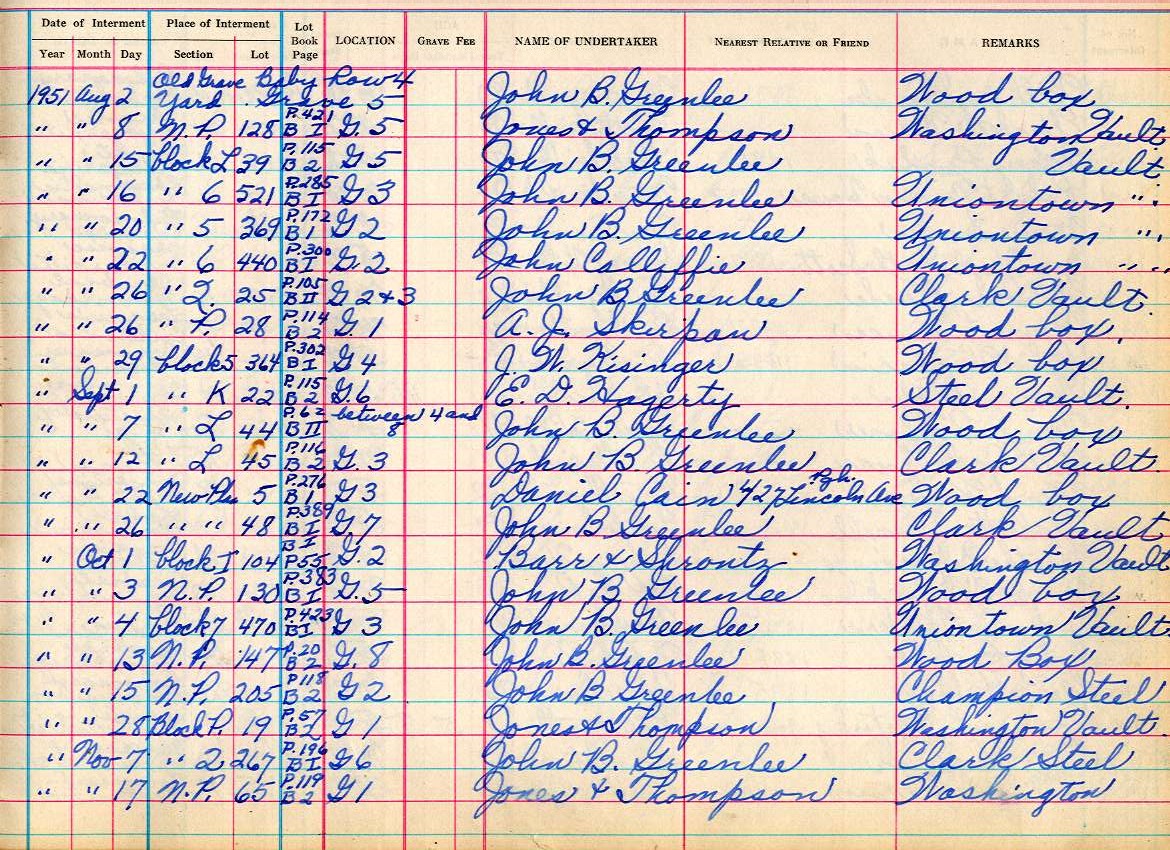 Date of Interment Place of Interment Lot Book Page LOCATION GRAVE FEE NAME OF UNDERTAKER NEAREST RELATIVE OR FRIEND REMARKS
Year Month Day Section Lot
1951 Aug 2 Old Grave Yard Baby Row 4 Grave 5 John B. Greenlee Wood box
" " 8 N.P. 128 P.421 B I G. 5 Jones & Thompson Washington Vault
" " 15 block L 39 P.115 B 2 G 5 John B. Greenlee Vault
" " 16 " 6 521 P.285 B I G 3 John B. Greenlee Uniontown "
" " 20 " 5 369 P.172 B 1 G 2 John B. Greenlee Uniontown "
" " 22 " 6 440 P.300 B I G. 2 John Uniontown " "
" " 26 " 25 P.105 B II G 2 & 3 John B Greenlee Clark Vault.
" " 26 " P. 28 P.114 B 2 G 1 A. J. Skirpan Wood box.
" " 29 block 5 364 P.302 B I G 4 J. W. Kisinger Wood box
" Sept 1 " K 22 P.115 B 2 G. 6 E. D. Hagerty Steel Vault.
" " 7 " L 44 P.62 B II between 4 and 8 John B. Greenlee Wood box
" " 12 " L 45 P.116 B 2 G. 3 John B. Greenlee Clark Vault
" " 22 New Plan 5 P.276 B 1 G 3 Daniel Cain 427 Lincoln Ave Pgh. Wood box
" " 26 " " 48 P.389 B I G. 7 John B Greenlee Clark Vault
" Oct 1 block I 104 B I P.55 G. 2 Barr & Shrontz Washington Vault
" " 3 N.P. 130 P.383 B I G. 5 John B Greenlee Wood box
" " 4 block 7 470 P.423 B I G 3 John B. Greenlee Uniontown Vault
" " 13 N.P. 147 P.20 B 2 G. 8 John B. Greenlee Wood Box
" " 15 N.P. 205 P.118 B 2 G 2 John B Greenlee Champion Steel
" " 28 Block P. 19 P.57 B 2 G 1 Jones & Thompson Washington Vault.
" Nov 7 " 2 267 P.196 B I G 6 John B. Greenlee Clark Steel
" " 17 N.P. 65 P.119 B 2 G 1 Jones & Thompson Washington